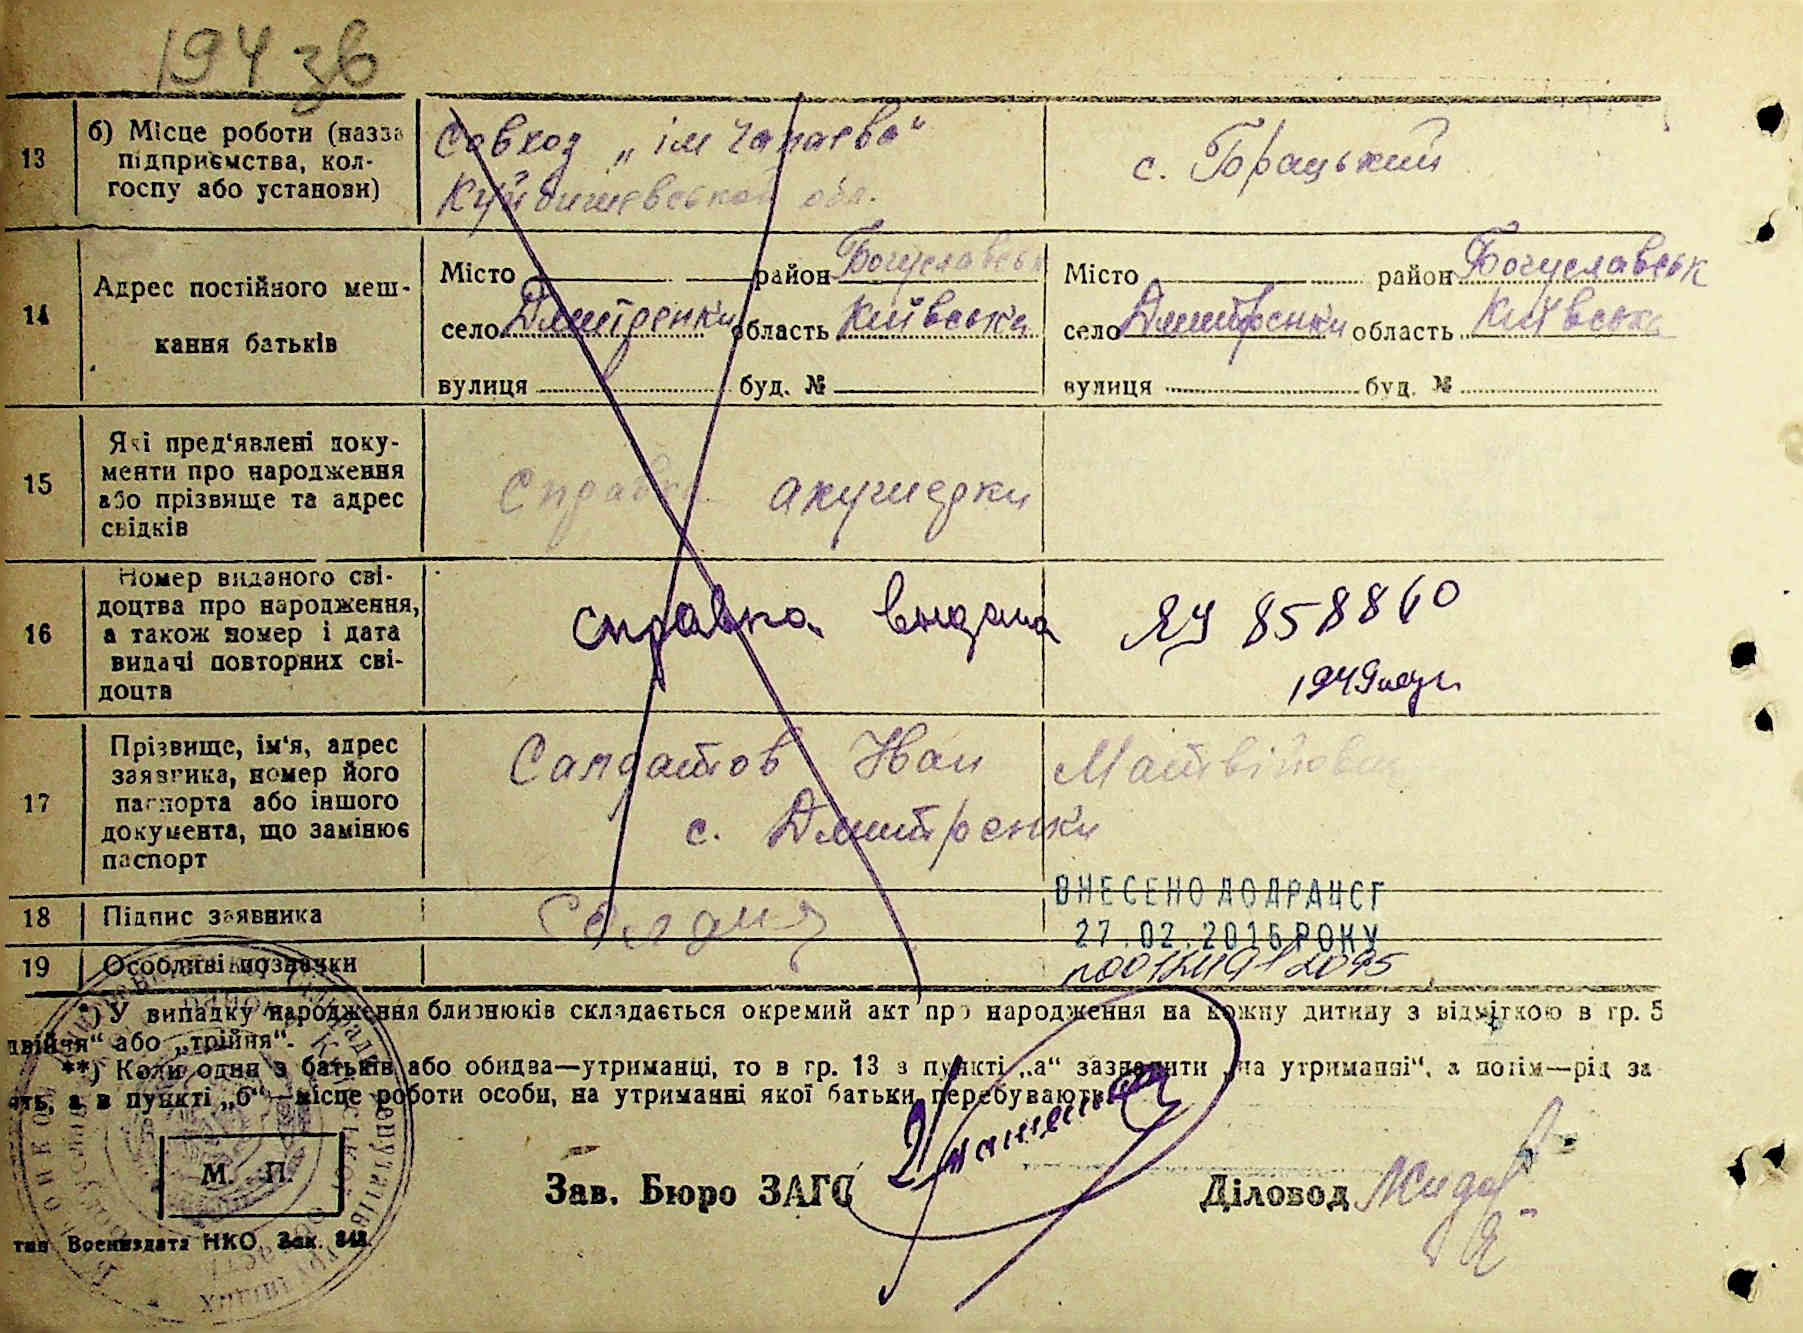 194 зв
13
б) Місце роботи (назва
підприємства, кол-
госпу або установи)
Совхоз „ім Чапаєва"
Куйбишевської обл.
с. Горацький
14
Адрес постійного меш-
кання батьків
Місто район Богуславськ
село Дмитренки область Київська
вулиця буд. №
Місто район Богуславськ
село Дмитренки область Київська
вулиця буд. №
15
Які пред'явлені доку-
менти про народження
або прізвище та адрес
свідків
Справка акушерки
16
Номер виданого сві-
доцтва про народження,
а також номер і дата
видачі повторних сві-
доцтв
справка видана
ЯУ 858860
1949
17
Прізвище, ім'я, адрес
заявника, номер його
паспорта або іншого
документа, що замінює
паспорт
Салдатов Иван Матвійович
с. Дмитренки
18
Підпис заявника
19
Особливі позначки
ВНЕСЕНО ДО ДРАЦСГ
27.02.2016 РОКУ
*) У випадку народження близнюків складається окремий акт про народження на кожну дитину з відміткою в гр. 5
двійня" або „трійня".
**) Коли один з батьків або обидва—утриманці, то в гр. 13 в пункті „а" зазначити „на утриманні", а потім—рід за
ять, а в пункті „б"—місце роботи особи, на утриманні якої батьки перебувають.
М. П.
Зав. Бюро ЗАГС
Діловод
тип Воениздата НКО Зак. 848.